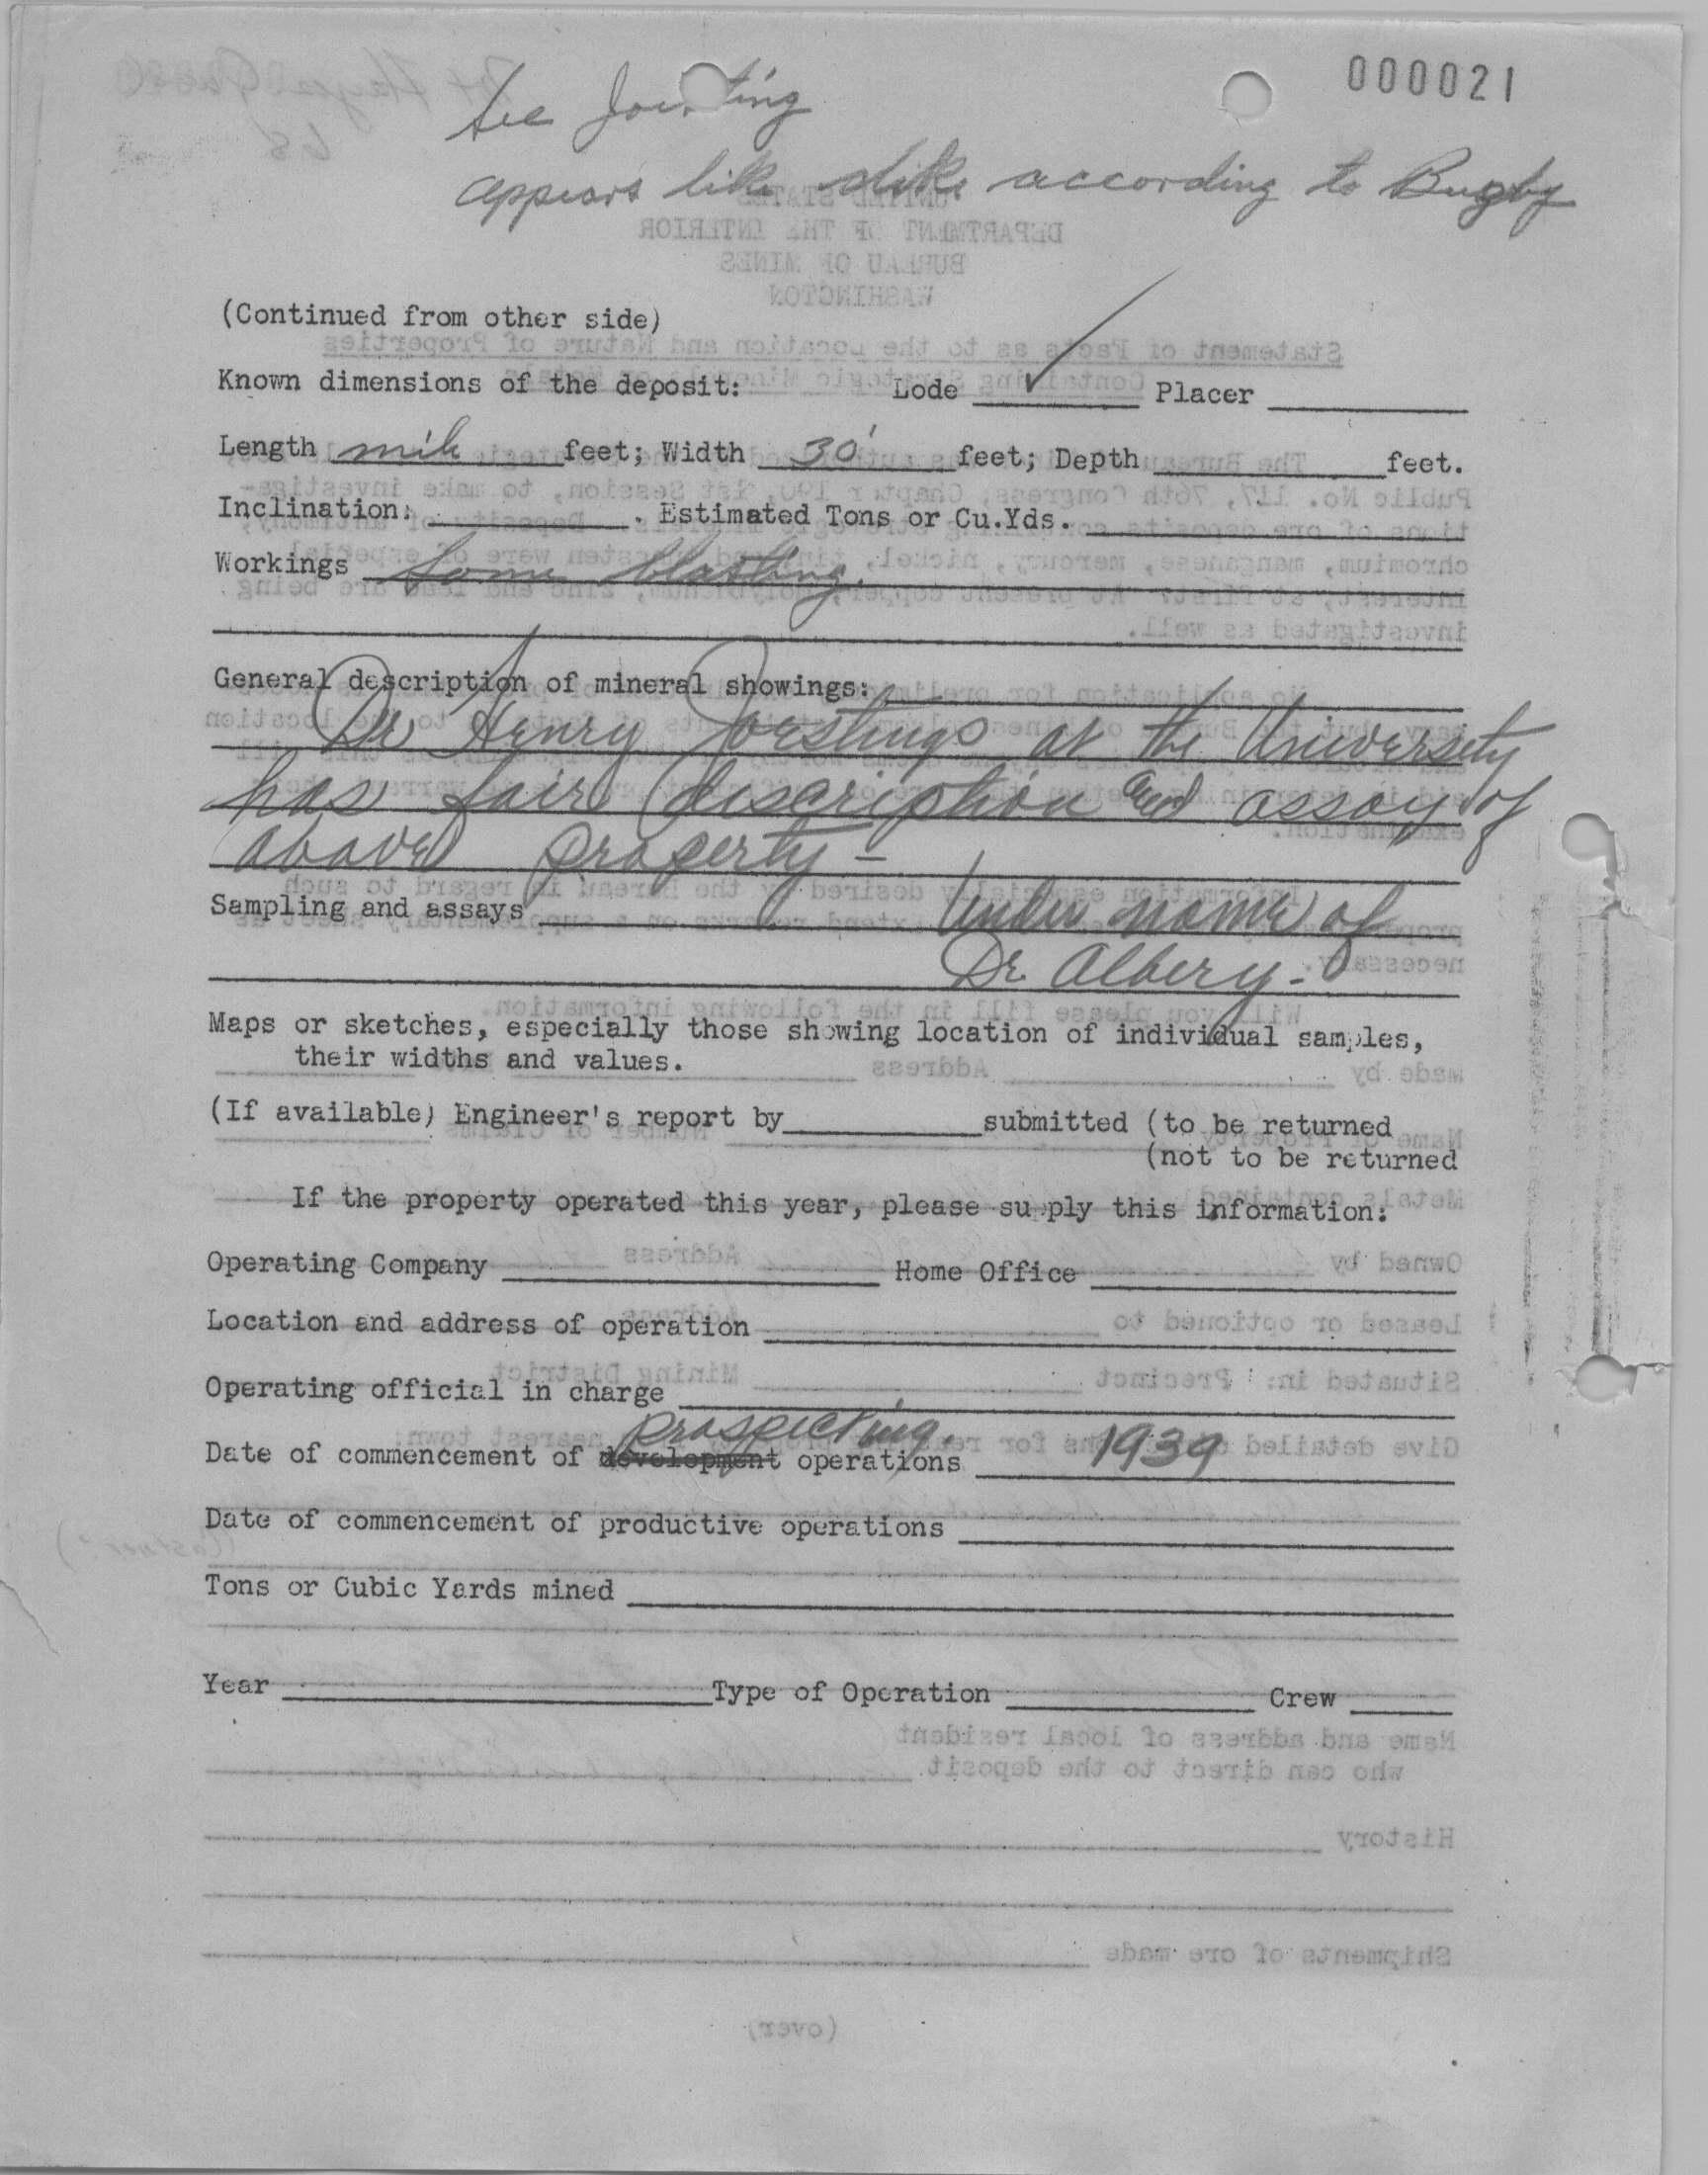 000021
See Joesting
appears like dike according to Bugby
(Continued from other side)
Known dimensions of the deposit: Lode ✓ Placer
Length mile feet; Width 30' feet; Depth feet.
Inclination: . Estimated Tons or Cu.Yds.
Workings Some blasting.
General description of mineral showings:
Dr Henry Joestings at the University
has fair description and assay of
above property -
Sampling and assays Under name of
Dr Albery -
Maps or sketches, especially those showing location of individual samples,
their widths and values.
(If available) Engineer's report by submitted (to be returned
(not to be returned
If the property operated this year, please supply this information:
Operating Company Home Office
Location and address of operation
Operating official in charge
prospecting.
Date of commencement of development operations 1939
Date of commencement of productive operations
Tons or Cubic Yards mined
Year Type of Operation Crew